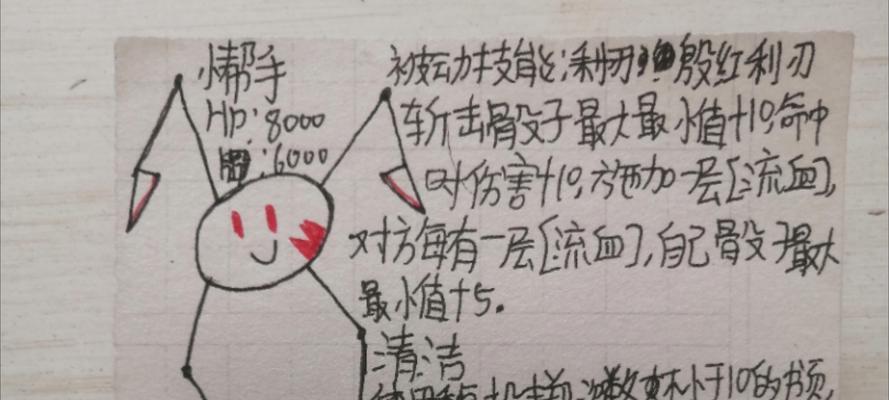 小帮手
HP:8000
:6000
被动技能:利刃殷红利刃
斩击骰子最大最小值+10,命中
时伤害+10,施加一层[流血],
对方每有一层[流血],自己骰子最大
最小值+5.
清洁
数不小于10的